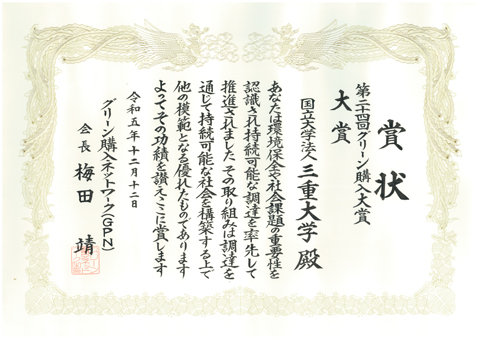 賞状
第二十四回グリーン購入大賞
大賞
国立大学法人 三重大学 殿
あなたは環境保全や社会課題の重要性を
認識され持続可能な調達を率先して
推進されました その取り組みは調達を
通じて持続可能な社会を構築する上で
他の模範となる優れたものであります
よってその功績を讃えここに賞します
令和五年十二月十二日
グリーン購入ネットワーク(GPN)
会長 梅田 靖